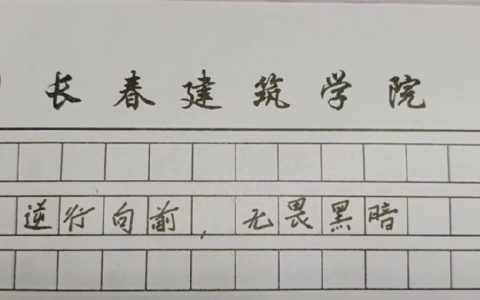 长春建筑学院
逆行向前，无畏黑暗